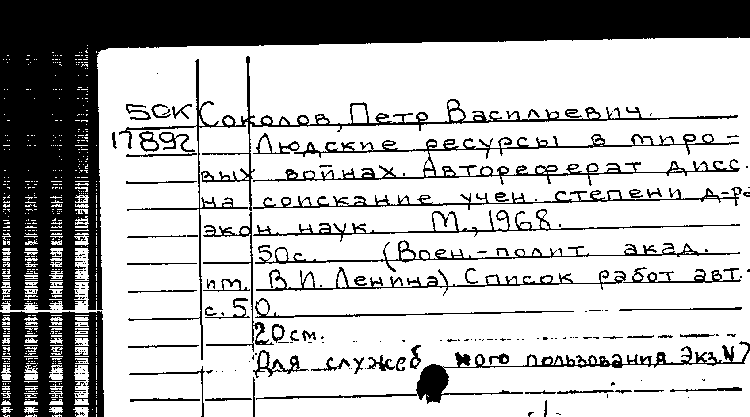 50К Соколов, Петр Васильевич.
17892 Людские ресурсы в миро=
вых войнах. Автореферат дисс.
на соискание учен. степени д-ра
экон. наук. М., 1968.
50с. (Воен.-полит. акад.
им. В.И. Ленина). Список работ авт.-
с. 50.
20 см.
Для служебного пользования Экз.N7